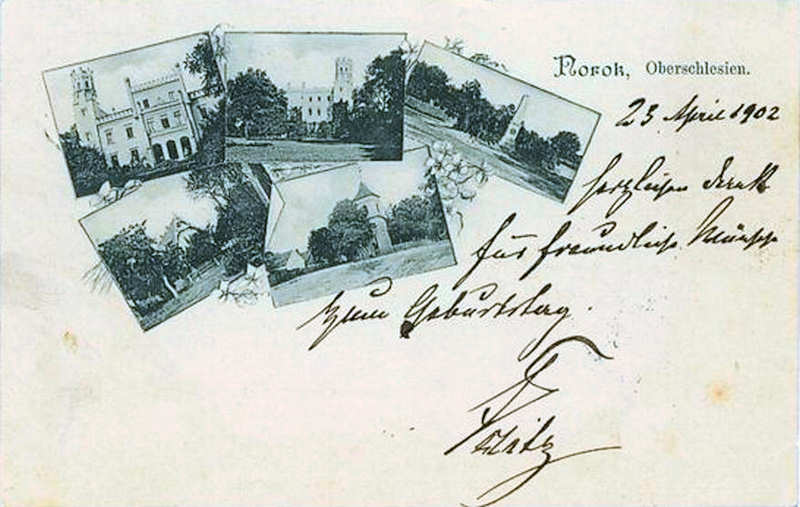 Norok, Oberschlesien.
23 April 1902
Herzlichen Dank
für freundliche Wünsche
zum Geburtstag.